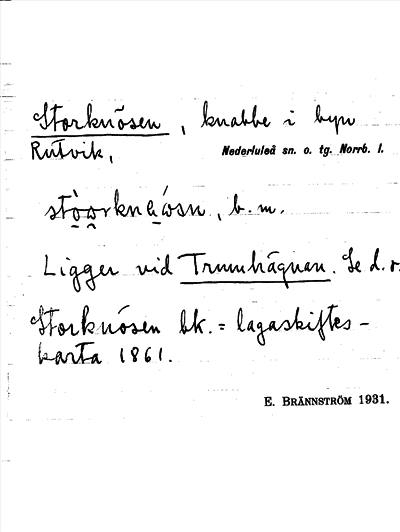 Storknösen, knabbe i byn
Rutvik, Nederluleå sn. o. tg. Norrb. l.
b. m.
Ligger vid Trumhägnan. Se d. o.
Storknösen bk. = lagaskiftes-
karta 1861.
E. BRÄNNSTRÖM 1931.